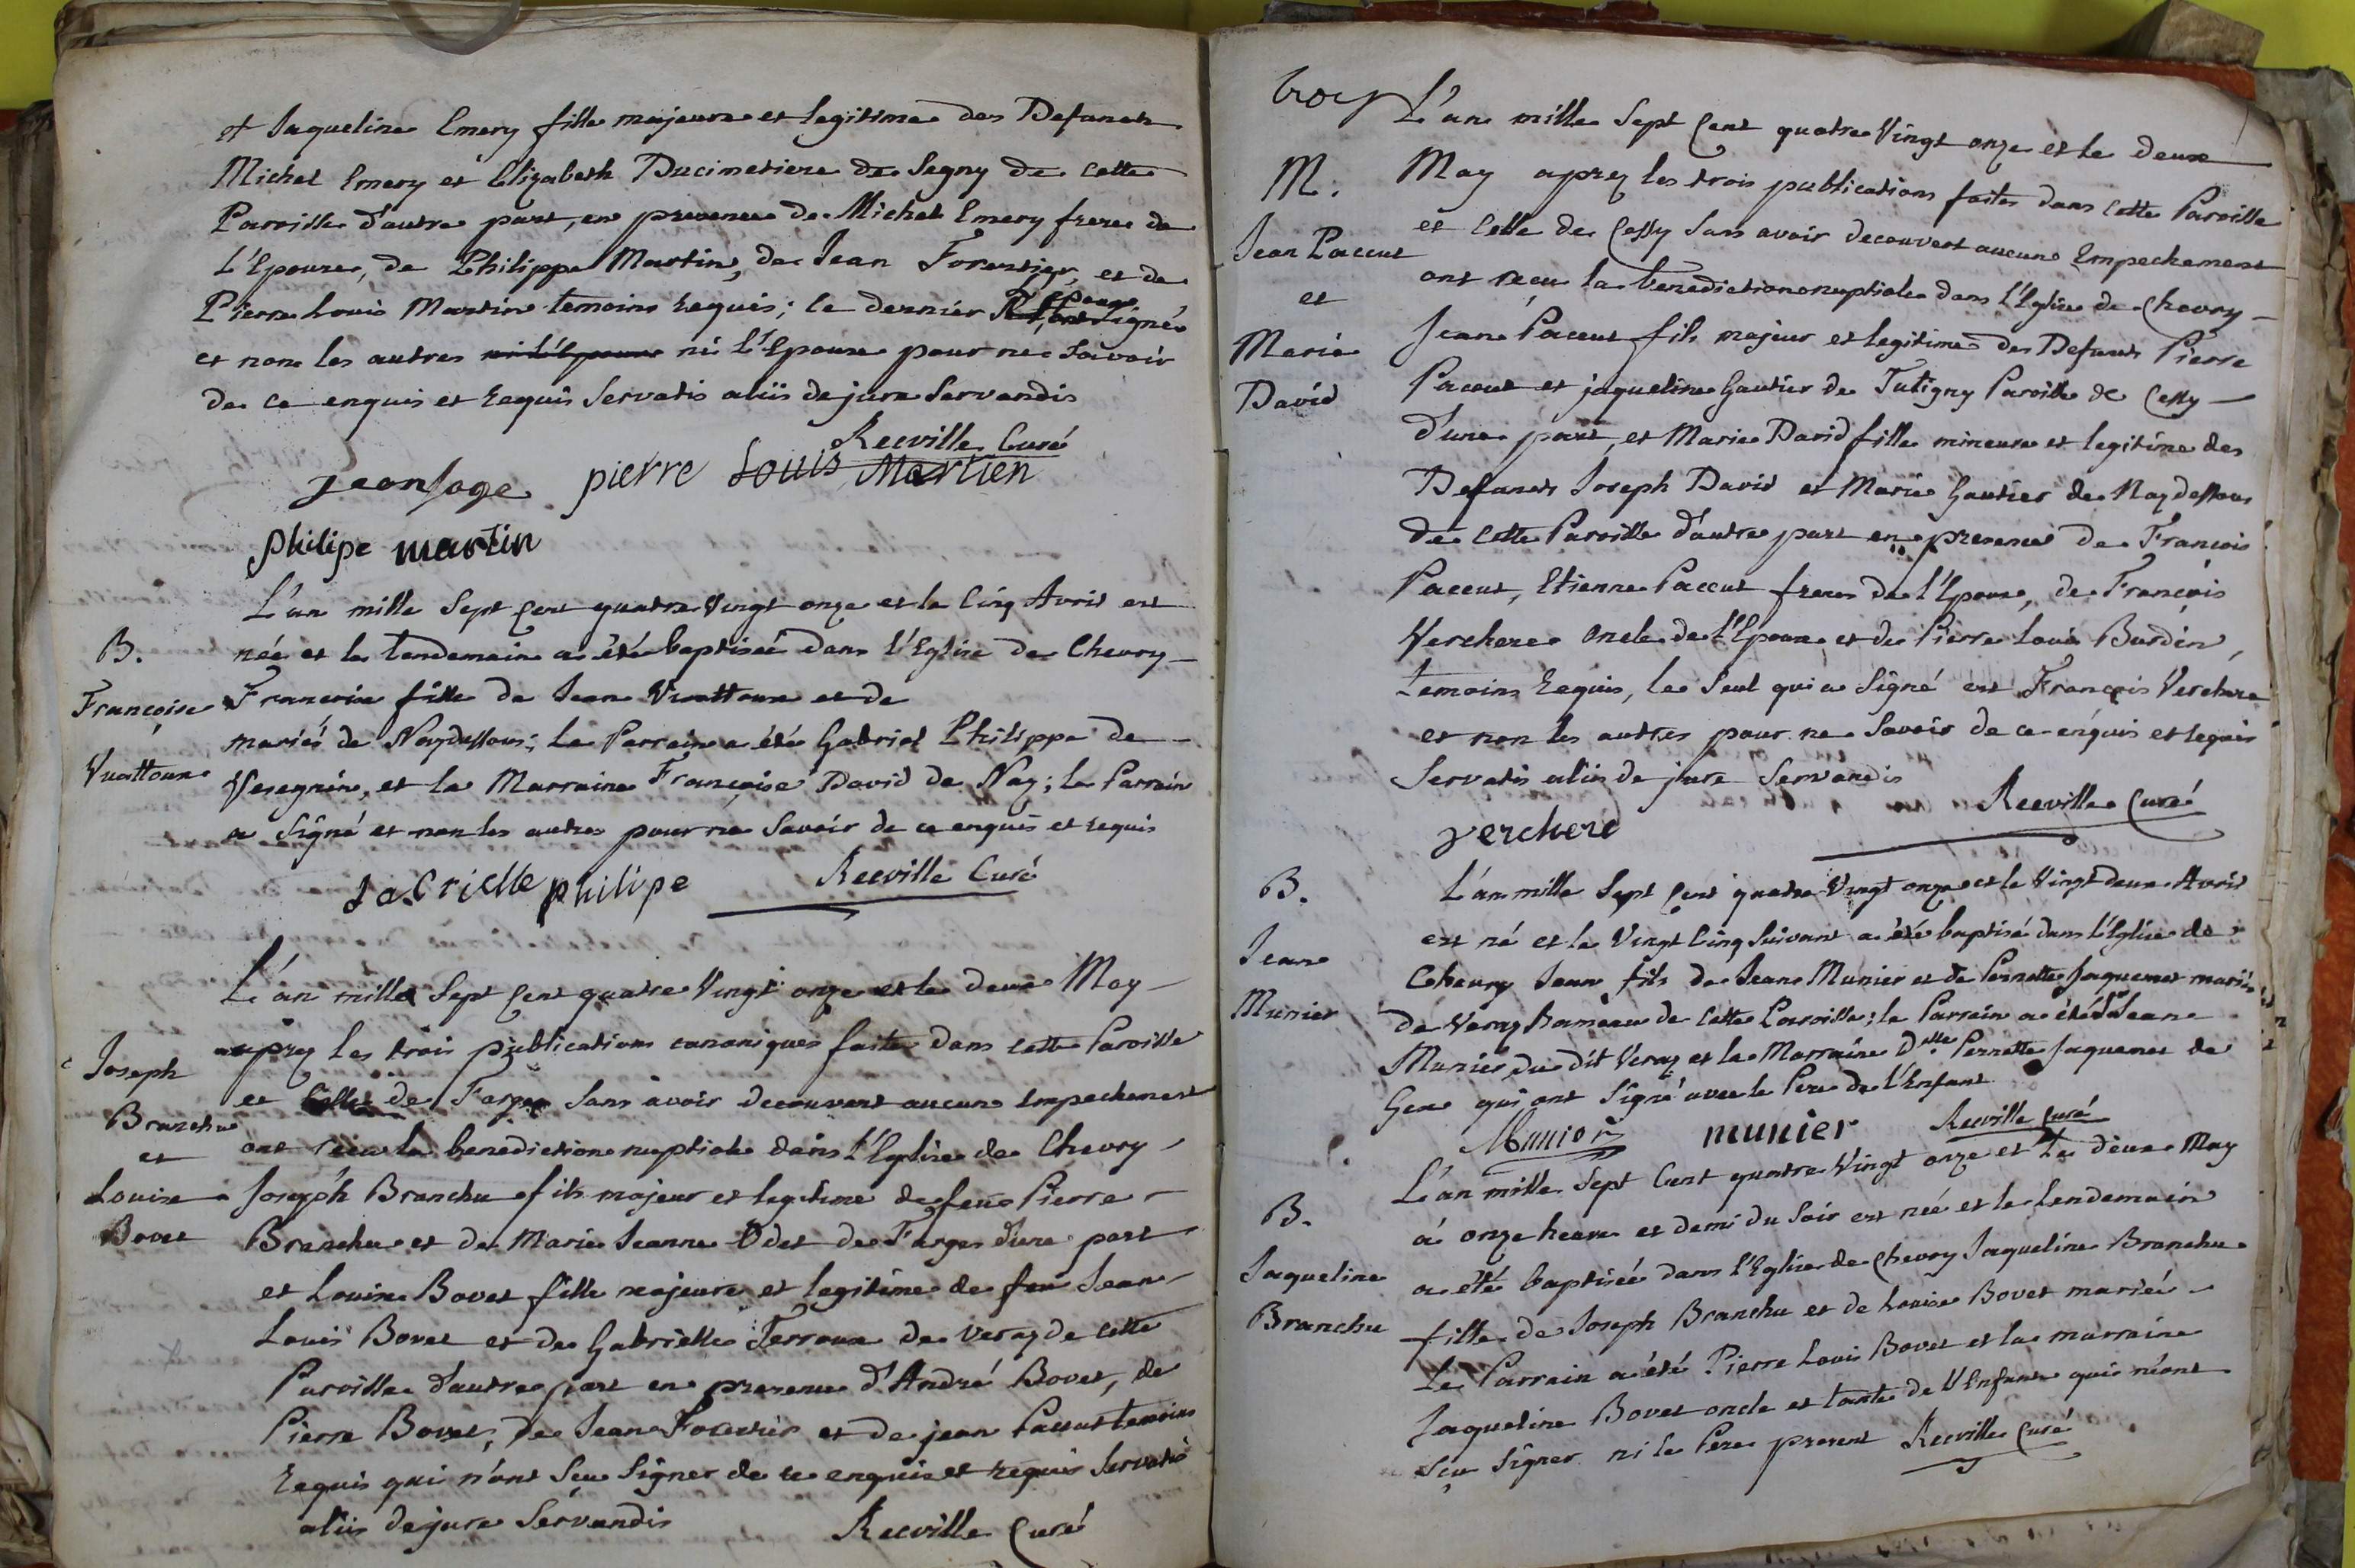 et Jaqueline Emery fille majeure et legitime des Defunts
Michel Emery et Elizabeth Ducimetiere de Segny de cette
Paroisse d'autre part, en presence de Michel Emery frere de
L'Epouse, de Philippe Martin, de Jean Forestier, et de
Pierre Louis Martin temoins requis; le dernier Epoux ont signé
et non les autres ni l'Epoux ni L'Epouse pour ne Savoir
de ce enquis et requis Servatis aliis de jure Servandis
Reeville Curé
jean sage pierre Louis Martien
philipe martin
L'an mille Sept Cent quatre Vingt onze et le Cinq Avril est
B.
née et le lendemain a été baptisée dans l'Eglise de Chevry
Françoise
Francoise fille de Jean Vuattoux et de
mariés de Naydessous; Le Parrain a été Gabriel Philippe de
Vuattoux
Vesegnin, et la Marraine Françoise David de Nay; le Parrain
a Signé et non les autres pour ne Savoir de ce enquis et requis
Gabrielle philipe Reeville Curé
L'an mille Sept Cent quatre Vingt onze et le deux May
aprez les trois publications canoniques faites dans cette Paroisse
Joseph
et Celle de Farges Sans avoir decouvert aucun Empechement
Branchu
ont recu la benediction nuptiale dans L'Eglise de Chevry
et
Louise
Joseph Branchu fils majeur et legitime de feu Pierre
Bovet
Branchu et de Marie Jeanne Odet de Farges d'une part
et Louise Bovet fille majeure et legitime de feu Jean
Louis Bovet et de Gabrielle Terroux de Veraz de cette
Paroisse d'autre part en presence d'André Bovet, de
Pierre Bovet, de Jean Forestier et de jean Paccut temoins
Requis qui n'ont Seu Signer de ce enquis et requis Servatis
aliis de jure Servandis
Reeville Curé
L'an mille Sept Cent quatre Vingt onze et le deux
M.
May aprez les trois publications faites dans cette Paroisse
et Celle de Cessy Sans avoir decouvert aucun Empechement
Jean Paccut
ont recu la benediction nuptiale dans l'Eglise de Chevry
et
Jean Paccut fils majeur et legitime des Defunts Pierre
Marie
Paccut et jaqueline Gautier de Tutigny Paroisse de Cessy
David
d'une part, et Marie David fille mineure et legitime des
Defunts Joseph David et Marie Gautier de Naydessous
de cette Paroisse d'autre part en presence de Francois
Paccut, Etienne Paccut freres de l'Epoux, de François
Verchere oncle de l'Epoux et de Pierre Louis Burdin,
temoins Requis, le Seul qui a Signé est François Verchere
et non les autres pour ne Savoir de ce enquis et requis
Servatis aliis de jure Servandis
Reeville Curé
verchere
B.
L'an mille Sept Cent quatre Vingt onze et le Vingt deux Avril
est né et le Vingt Cinq Suivant a été baptisé dans L'Eglise de
Jean
Chevry Jean fils de Jean Munier et de Pernette Jaquemet mariés
Munier
de Veraz hameau de cette Paroisse; le Parrain a été Sr Jean
Munier du dit Veraz et la Marraine Delle Pernette Jaquemet de
Gex qui ont Signé avec le Pere de l'Enfant
Munier munier Reeville Curé
L'an mille Sept Cent quatre Vingt onze et le deux May
B.
à onze heure et demi du Soir est née et le lendemain
Jaqueline
a été baptisée dans l'Eglise de Chevry Jaqueline Branchu
Branchu
fille de Joseph Branchu et de Louise Bovet mariés
Le Parrain a été Pierre Louis Bovet et la marraine
Jaqueline Bovet oncle et tante de l'Enfant qui n'ont
Sçu Signer ni le Pere present Reeville Curé